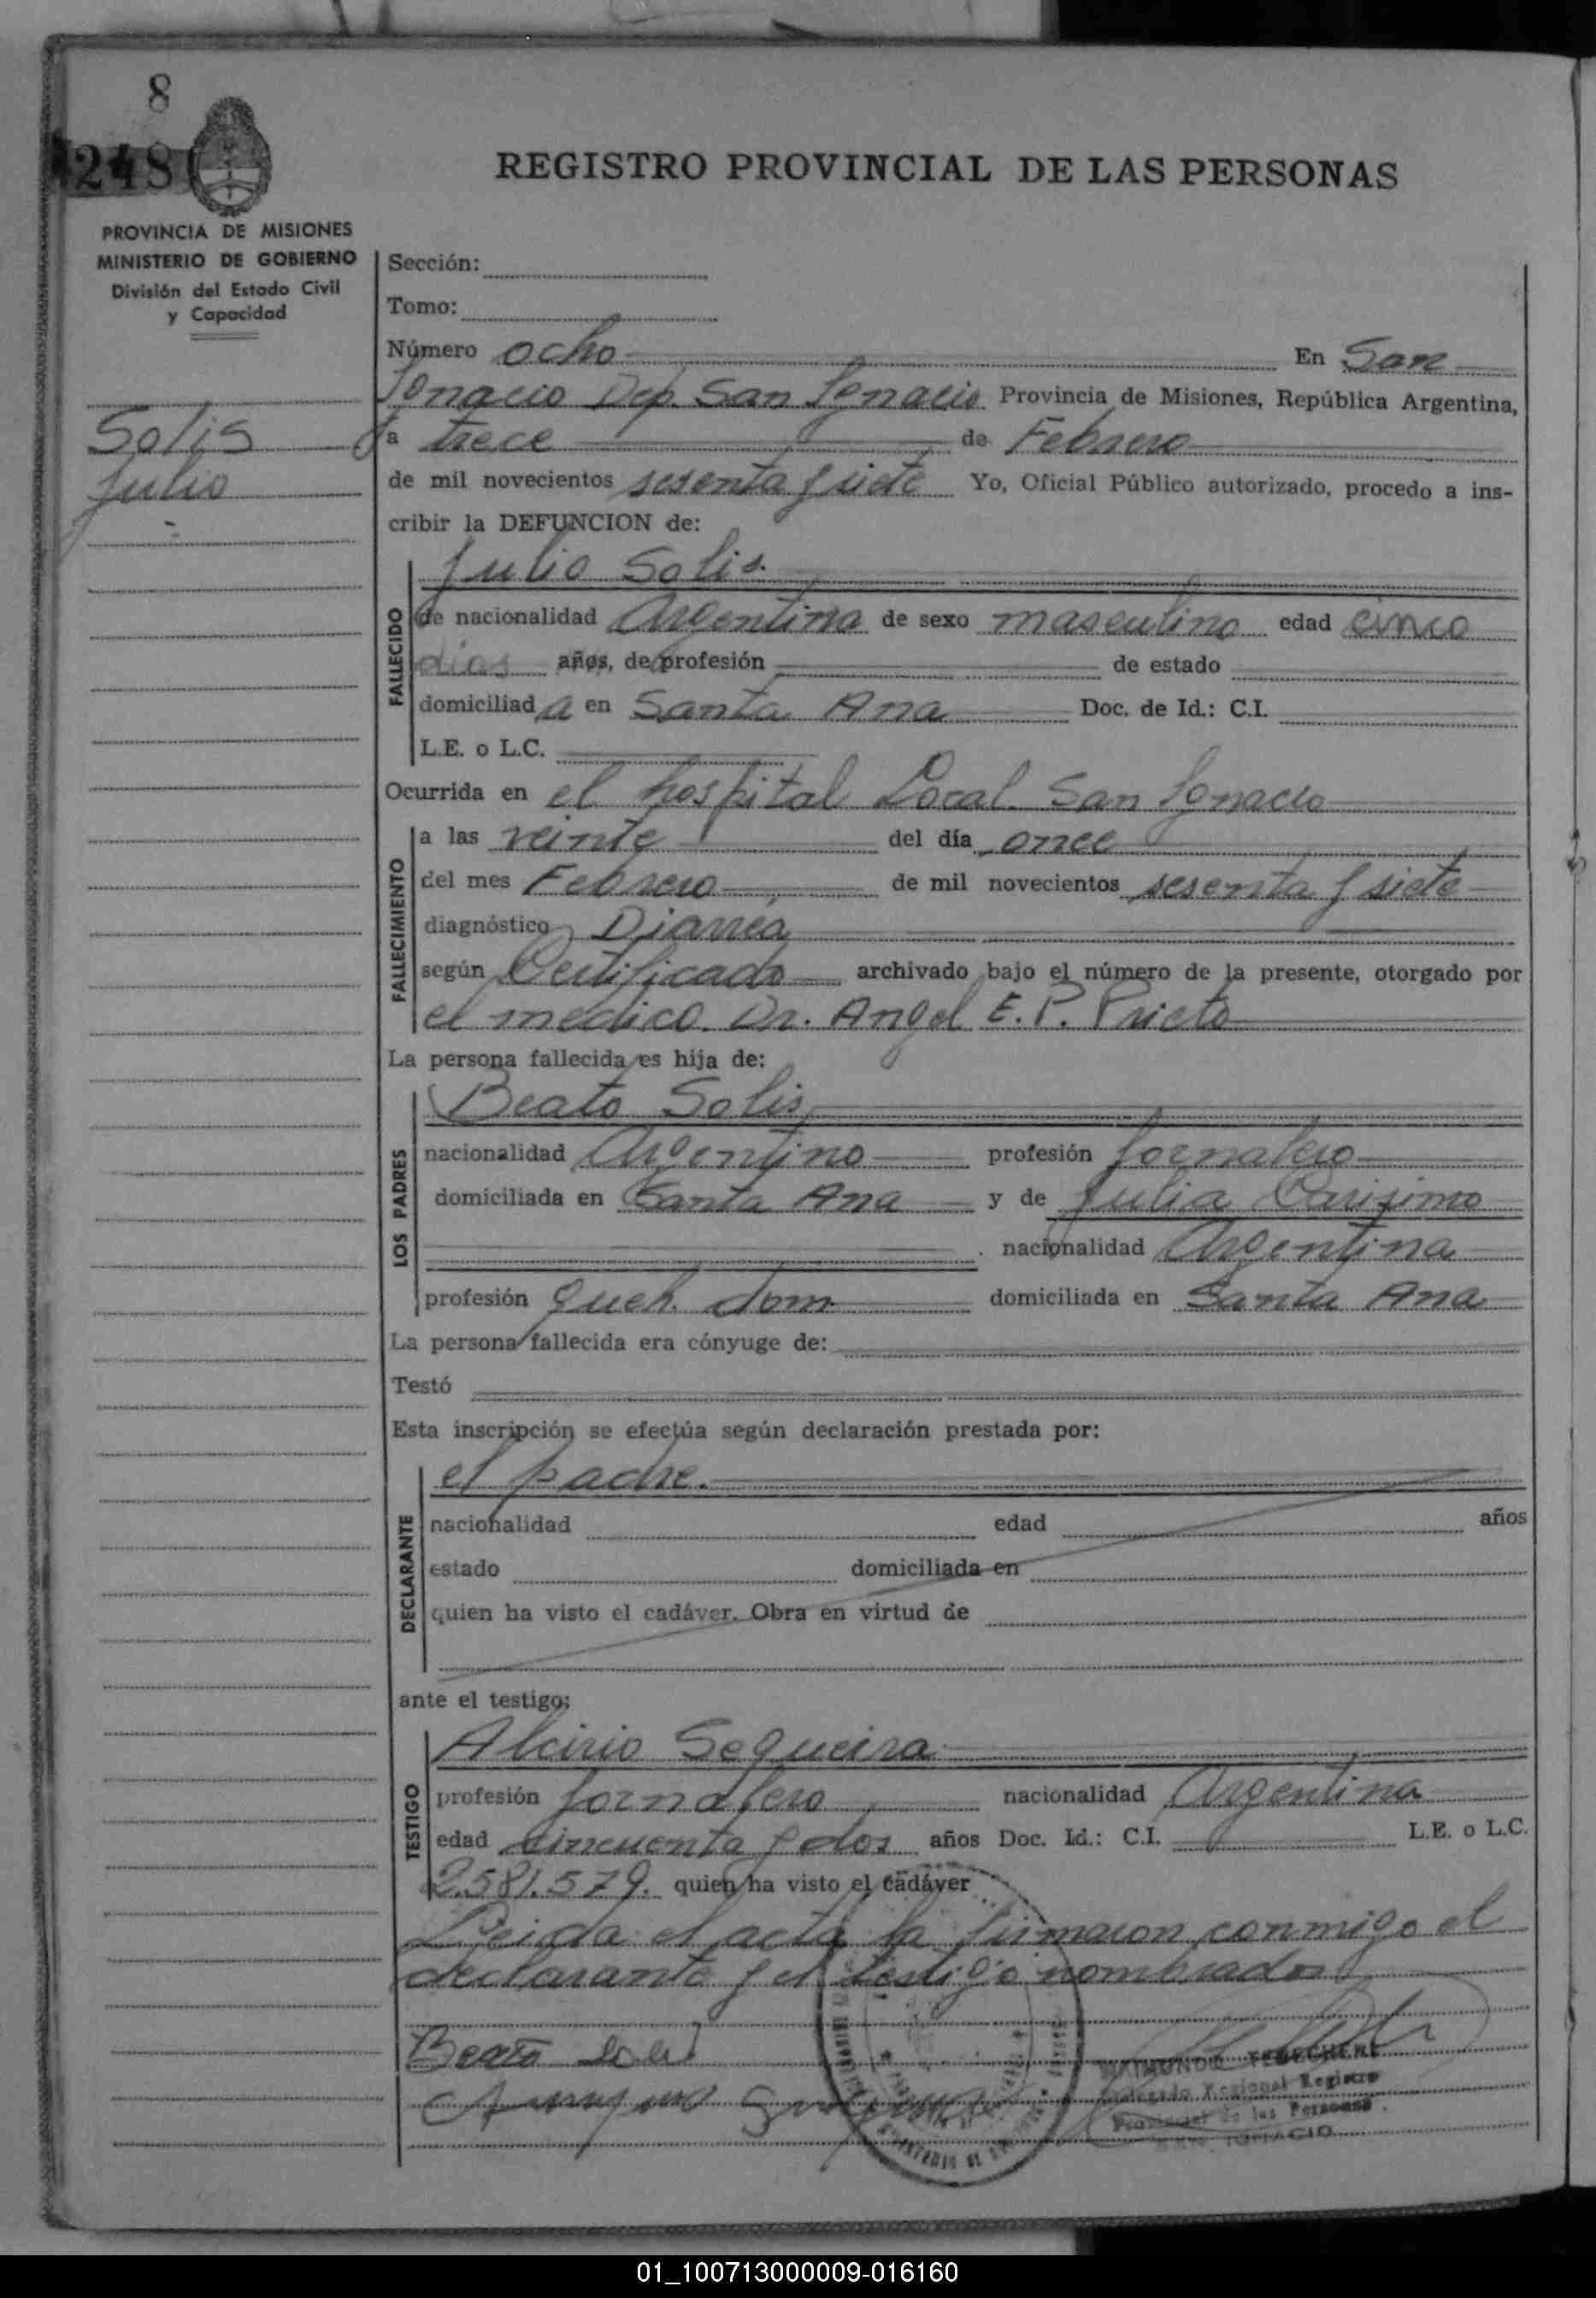 8
248
REGISTRO PROVINCIAL DE LAS PERSONAS
PROVINCIA DE MISIONES
MINISTERIO DE GOBIERNO
División del Estado Civil
y Capacidad
Solis
Julio
Sección:
Tomo:
Número ocho En San
Ignacio Dep. San Ignacio Provincia de Misiones, República Argentina,
a trece de Febrero
de mil novecientos sesenta y siete Yo, Oficial Público autorizado, procedo a ins-
cribir la DEFUNCION de:
FALLECIDO
Julio Solis.
de nacionalidad Argentina de sexo masculino edad cinco
dias años, de profesión de estado
domiciliad a en Santa Ana Doc. de Id.: C.I.
L.E. o L.C.
Ocurrida en el hospital Local San Ignacio
FALLECIMIENTO
a las veinte del día once
del mes Febrero de mil novecientos sesenta y siete
diagnóstico Diarrea
según Certificado archivado bajo el número de la presente, otorgado por
el medico. Dr. Angel E. P. Prieto
La persona fallecida es hija de:
LOS PADRES
Beato Solis
nacionalidad Argentino profesión Jornalero
domiciliada en Santa Ana y de Julia Carisimo
nacionalidad Argentina
profesión Queh. dom domiciliada en Santa Ana
La persona fallecida era cónyuge de:
Testó
Esta inscripción se efectúa según declaración prestada por:
DECLARANTE
el padre.
nacionalidad edad años
estado domiciliada en
quien ha visto el cadáver. Obra en virtud de
ante el testigo:
TESTIGO
Alcirio Sequeira
profesión Jornalero nacionalidad Argentina
edad cincuenta y dos años Doc. Id.: C.I. L.E. o L.C.
2.581.579. quien ha visto el cadáver
Leida el acta la firmaron conmigo el
declarante y el testigo nombrados
Beato Solis
Delegado Regional Registro
Provincial de las Personas
SAN IGNACIO
01_100713000009-016160